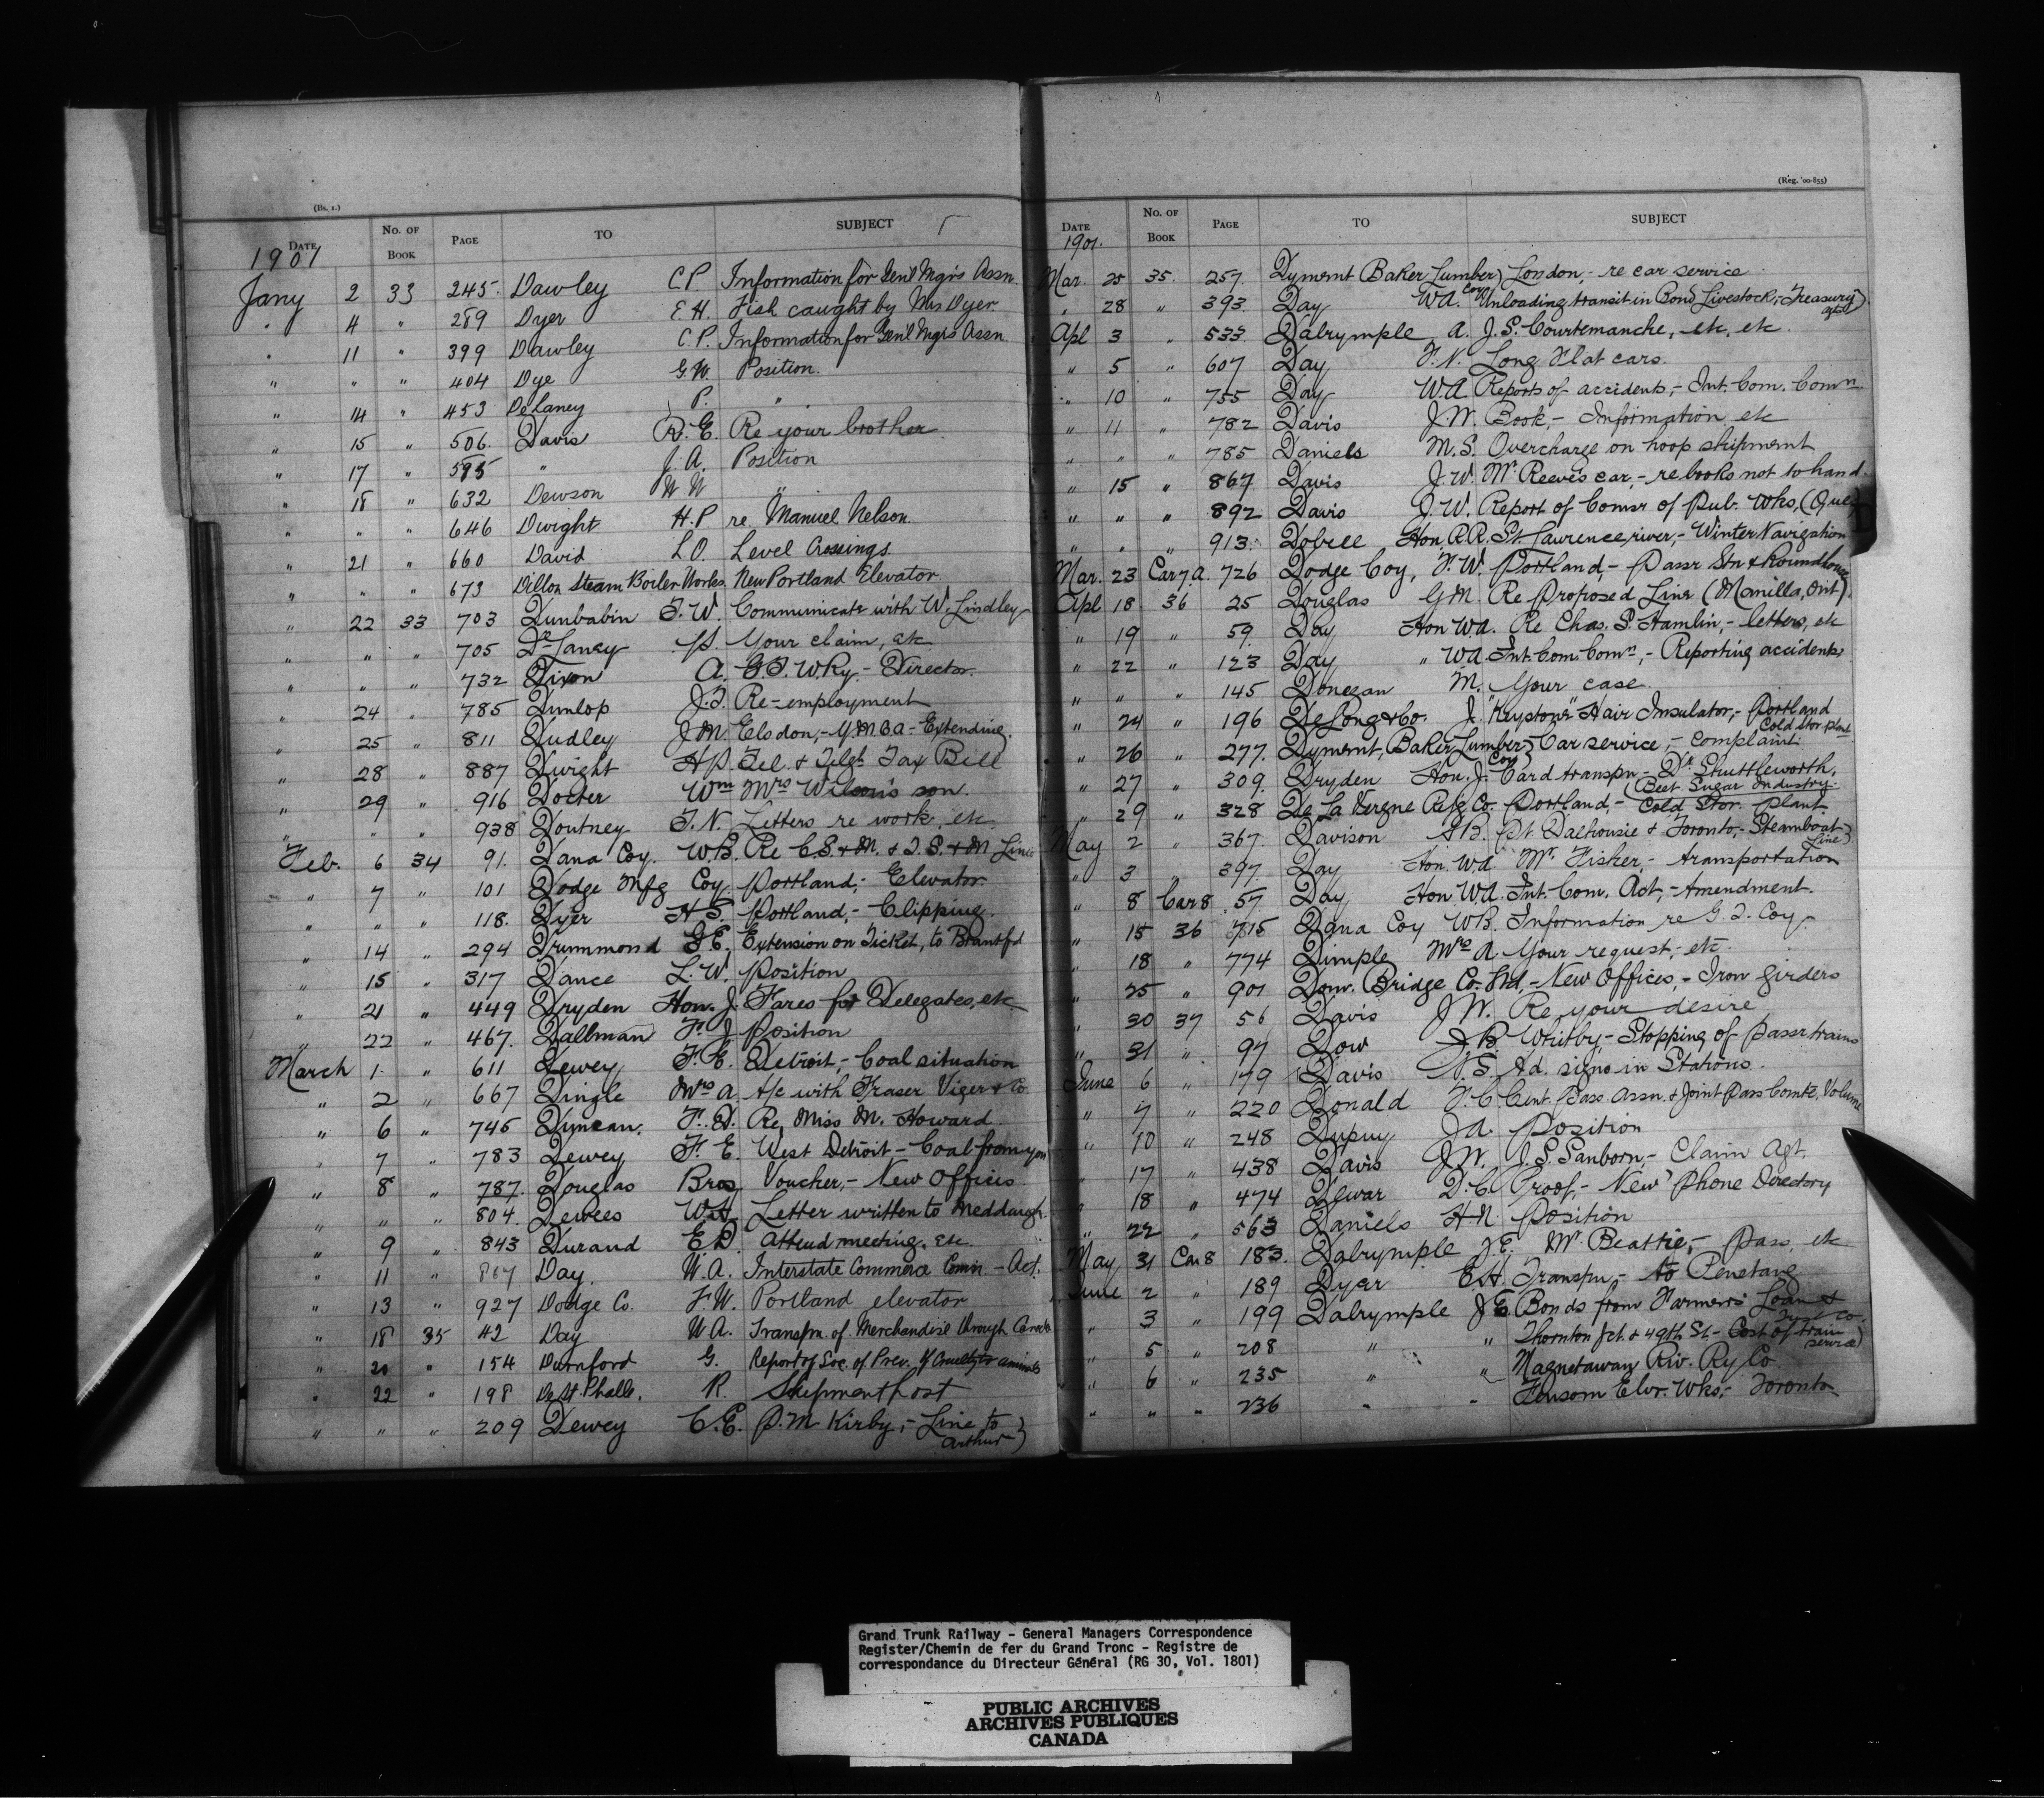 (Bs. 1.)
DATE No. OF BOOK PAGE TO SUBJECT
1901
Jany 2 33 245. Dawley C.P. Information for Genl Mgrs Assn.
" 4 " 289 Dyer E.H. Fish caught by Mrs Dyer.
" 11 " 399 Dawley C.P. Information for Genl Mgrs Assn.
" " " 404 Dye G.W. Position.
" 14 " 453 DeLaney P. "
" 15 " 506. Davis R.E. Re your brother
" 17 " 595 " J.A. Position
" 18 " 632 Dewson W W "
" " " 646 Dwight H.P. re. Manuel Nelson.
" 21 " 660 David L.O. Level Crossings.
" " " 673 Dillon Steam Boiler Works. New Portland Elevator
" 22 33 703 Dunbabin T.W. Communicate with W. Lindley
" " " 705 DeLaney P. Your claim, etc
" " " 732 Dixon A. G.T.W.Ry. - Director.
" 24 " 785 Dunlop J.T. Re-employment
" 25 " 811 Dudley J.M. Elsdon,- Y.M.C.A - Extending.
" 28 " 887 Dwight H.P. Tel. & Telgh Tax Bill
" 29 " 916 Docter Wm Mrs Wilson's son.
" " " 938 Doutney T.N. Letters re work, etc.
Feb. 6 34 91. Dana Coy. W.B. Re C.S. & M. & T.S. & M Line
" 7 " 101 Dodge Mfg Coy. Portland,- Elevator.
" " " 118. Dyer H.S. Portland,- Clipping.
" 14 " 294 Drummond G.E. Extension on Ticket, to Brantfd
" 15 " 317 Dance L.W. Position
" 21 " 449 Dryden Hon. J. Fares for Delegates, etc
" 22 " 467. Dallman F.J. Position
March 1 " 611 Dewey F.E. Detroit,- Coal situation
" 2 " 667 Dingle Mrs A. A/c with Fraser Viger & Co
" 6 " 745 Duncan. F.D. Re Miss M. Howard
" 7 " 783 Dewey F.E. West Detroit,- Coal from you
" 8 " 787. Douglas Bros. Voucher,- New Offices
" " " 804. Dewees W.H. Letter written to Meddaugh.
" 9 " 843 Durand E.D. Attend meeting, etc.
" 11 " 867 Day. W.A. Interstate Commerce Comn. - Act.
" 13 " 927 Dodge Co. F.W. Portland elevator
" 18 35 42 Day W.A. Transpn. of Merchandise through Canada
" 20 " 154 Durnford G. Report of Soc. of Prev. of Cruelty to animals
" 22 " 198 DeSt.Phalle. R. Shipment lost
" " " 209 Dewey C.E. P.M. Kirby,- Line to Arthur)
(Reg. '00-855)
DATE No. OF BOOK PAGE TO SUBJECT
1901.
Mar. 25 35. 257. Dyment Baker Lumber Coy) London,- re car service
" 28 " 393. Day W.A. Unloading transit in Bond Livestock,- Treasury
Apl 3 " 533. Dalrymple A. J.S. Courtemanche, etc, etc.
" 5 " 607 Day F.N. Long Flat cars.
" 10 " 755 Day W.A. Reports of accidents,- Int. Com. Comn.
" 11 " 782 Davis J.W. Book,- Information, etc
" " " 785 Daniels M.S. Overcharge on hoop shipment
" 15 " 867 Davis J.W. Mr Reeve's car,- re books not to hand.
" " " 892 Davis J.W. Report of Comsr of Pub. Wks, (Que)
" " " 913. Dobell Hon. R.R. St. Lawrence river,- Winter Navigation
Mar. 23 Car 7.A. 726 Dodge Coy, F.W. Portland,- Passr Stn & Roundhouse
Apl 18 36 25 Douglas G.M. Re Proposed Line (Manilla, Ont).
" 19 " 59 Day Hon. W.A. Re Chas. S. Hamlin,- letters, etc
" 22 " 123 Day " W.A. Int. Com. Comn,- Reporting accidents
" " " 145 Donegan M. Your case.
" 24 " 196 DeLong & Co. J. "Keystone" Hair Insulator,- Portland Cold Stor. plant
" 26 " 277. Dyment, Baker Lumber Coy) Car service,- complaint
" 27 " 309. Dryden Hon. J. Card transpn - Dr Shuttleworth, (Beet Sugar Industry.
" 29 " 328 De La Vergne Refg Co. Portland,- Cold Stor. Plant
May 2 " 367. Davison A.B. Pt. Dalhousie & Toronto,- Steamboat Line)
" 3 " 397. Day Hon. W.A. Mr. Fisher,- transportation
" 8 Car 8. 57 Day Hon. W.A. Int. Com. Act,- Amendment.
" 15 36 715 Dana Coy W.B. Information re G.T. Coy.
" 18 " 774 Dimple Mrs A. Your request, etc.
" 25 " 901 Dom. Bridge Co. Ltd,- New Offices,- Iron girders
" 30 37 56 Davis J.W. Re your desire
" 31 " 97 Dow J.B. Whitby - Stopping of passr trains
June 6 " 179 Davis N.S. Ad. signs in Stations.
" 7 " 220 Donald F.C. Cent. Pass. Assn. & Joint Pass Comte, Volume
" 10 " 248 Dupuy J.A. Position
" 17 " 438 Davis J.W. J.S. Sanborn,- Claim Agt.
" 18 " 474 Dewar D.C. Proof,- New 'Phone Directory
" 22 " 563 Daniels H.N. Position
May 31 Car 8 183. Dalrymple J.E. Mr. Beattie,- Pass, etc
June 2 " 189 Dyer E.H. Transpn,- to Penetang
" 3 " 199 Dalrymple J.E. Bonds from Farmers Loan & Co.
" 5 " 208 " " Thornton Jct. & 49th St.- Cost of train service)
" 6 " 235 " " Magnetawan Riv. Ry Co
" " " 236 " " Fensom Elvr. Wks,- Toronto
Grand Trunk Railway - General Managers Correspondence
Register/Chemin de fer du Grand Tronc - Registre de
correspondance du Directeur Général (RG 30, Vol. 1801)
PUBLIC ARCHIVES
ARCHIVES PUBLIQUES
CANADA